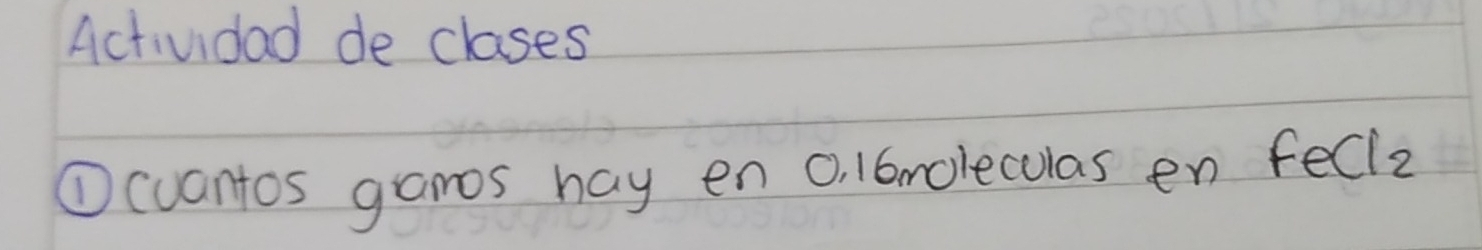 Actividad de clases
① cuantos gramos hay en 0,16moleculas en FeCl2